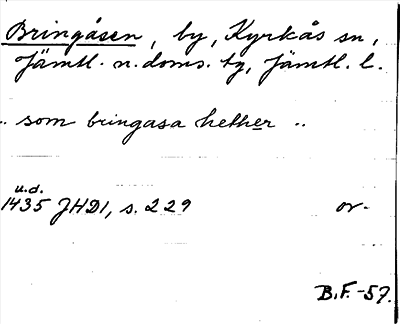 Bringåsen, by, Kyrkås sn,
Jämtl. n. doms. tg, Jämtl. l.
.. som bringasa hether ..
u.d.
1435 JHD1, s. 229 or.
B.F.-57.